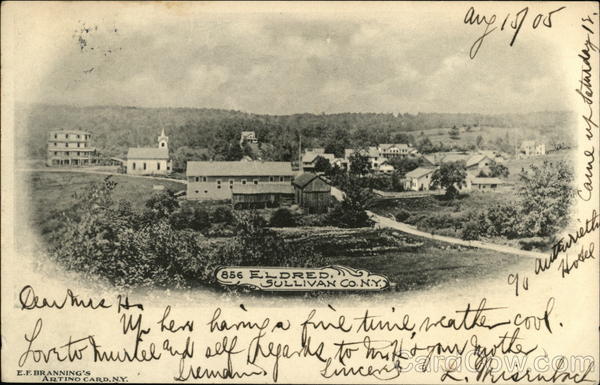 Aug 15/05
Came up Saturday 12.
856 ELDRED,
SULLIVAN CO. N.Y.
Dear Mrs H.
Up here having a fine time, weather cool.
Love to and self regards to Mr H, & your mother
I remain Sincerely
c/o
Hotel
E.F. BRANNING'S
ARTINO CARD, N.Y.
CardCow.com